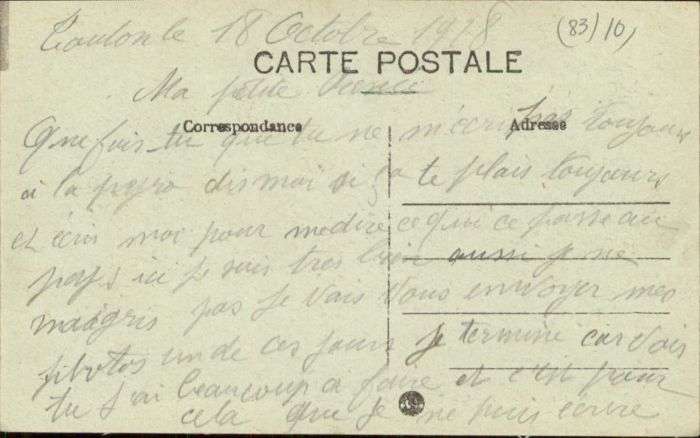 Toulon le 18 Octobre 1918
(83)/10,
CARTE POSTALE
Ma petite
Correspondance
Adresse
Que fais-tu que tu ne m'écris pas toujours
à la dis moi si ça te plais toujours
et écris moi pour me dire ce qui ce passe au
pays ici je suis tres bien aussi je ne
maigris pas je vais vous envoyer mes
photos un de ces jours je termine car vois
tu j'ai beaucoup a faire et c'est pour
cela que je ne puis ecrire